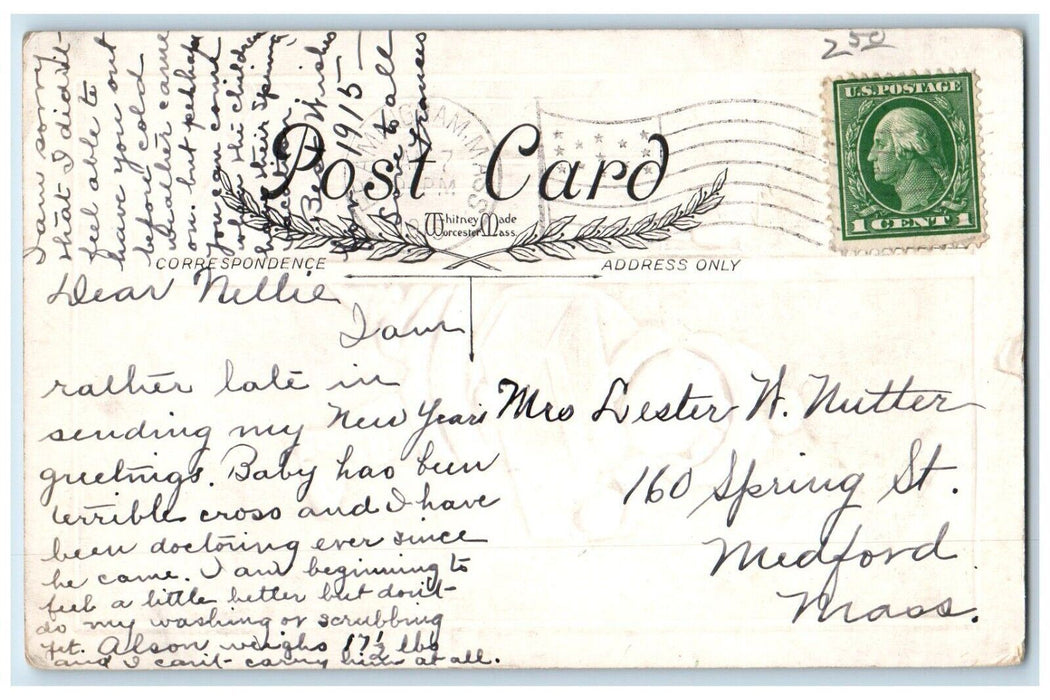 250
U.S. POSTAGE
1 CENT 1
Post Card
Whitney Made
Worcester Mass.
CORRESPONDENCE
ADDRESS ONLY
Dear Nellie
I am
rather late in
sending my New Years
greetings. Baby has been
terrible cross and I have
been doctoring ever since
he came. I am beginning to
feel a little better but don't
do my washing or scrubbing
yet. Alson weighs 17½ lbs
and I can't carry him at all.
I am sorry
that I didn't
feel able to
have you out
before cold
weather came
on. but perhaps
you can come
when the children
have their Spring
vacation.
Best Wishes
for 1915 —
Love to all
Frances
Mrs Lester W. Nutter
160 Spring St.
Medford
Mass.